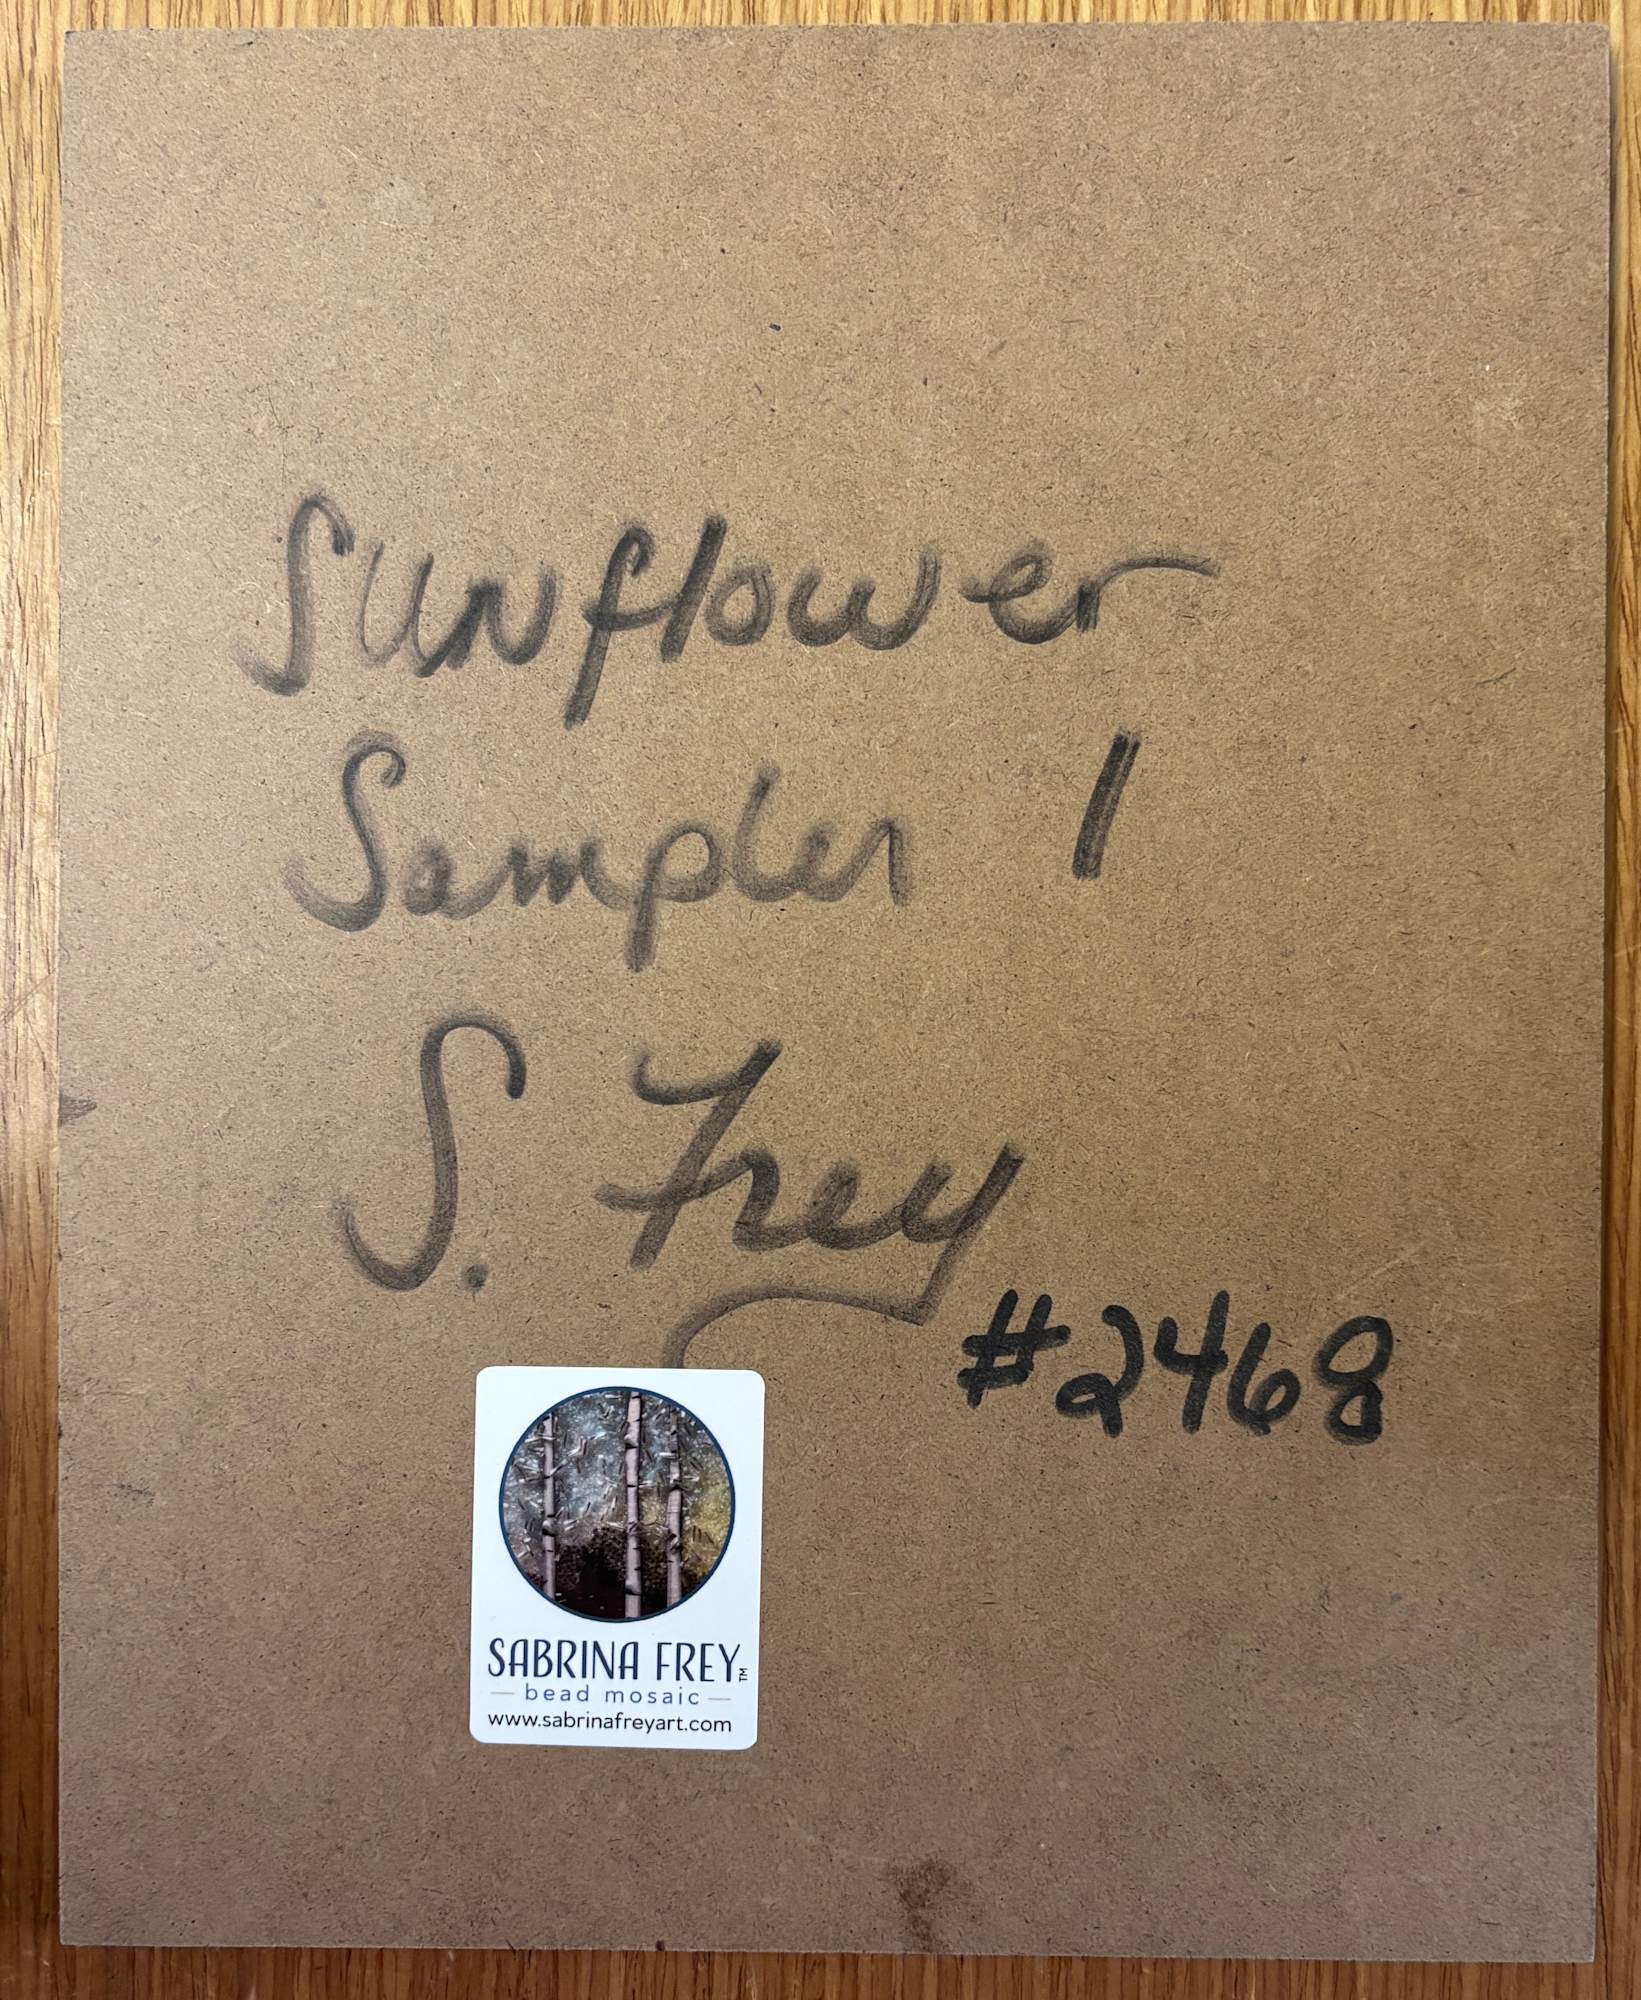 Sunflower
Sampler 1
S. Frey
#2468
SABRINA FREY™
bead mosaic
www.sabrinafreyart.com